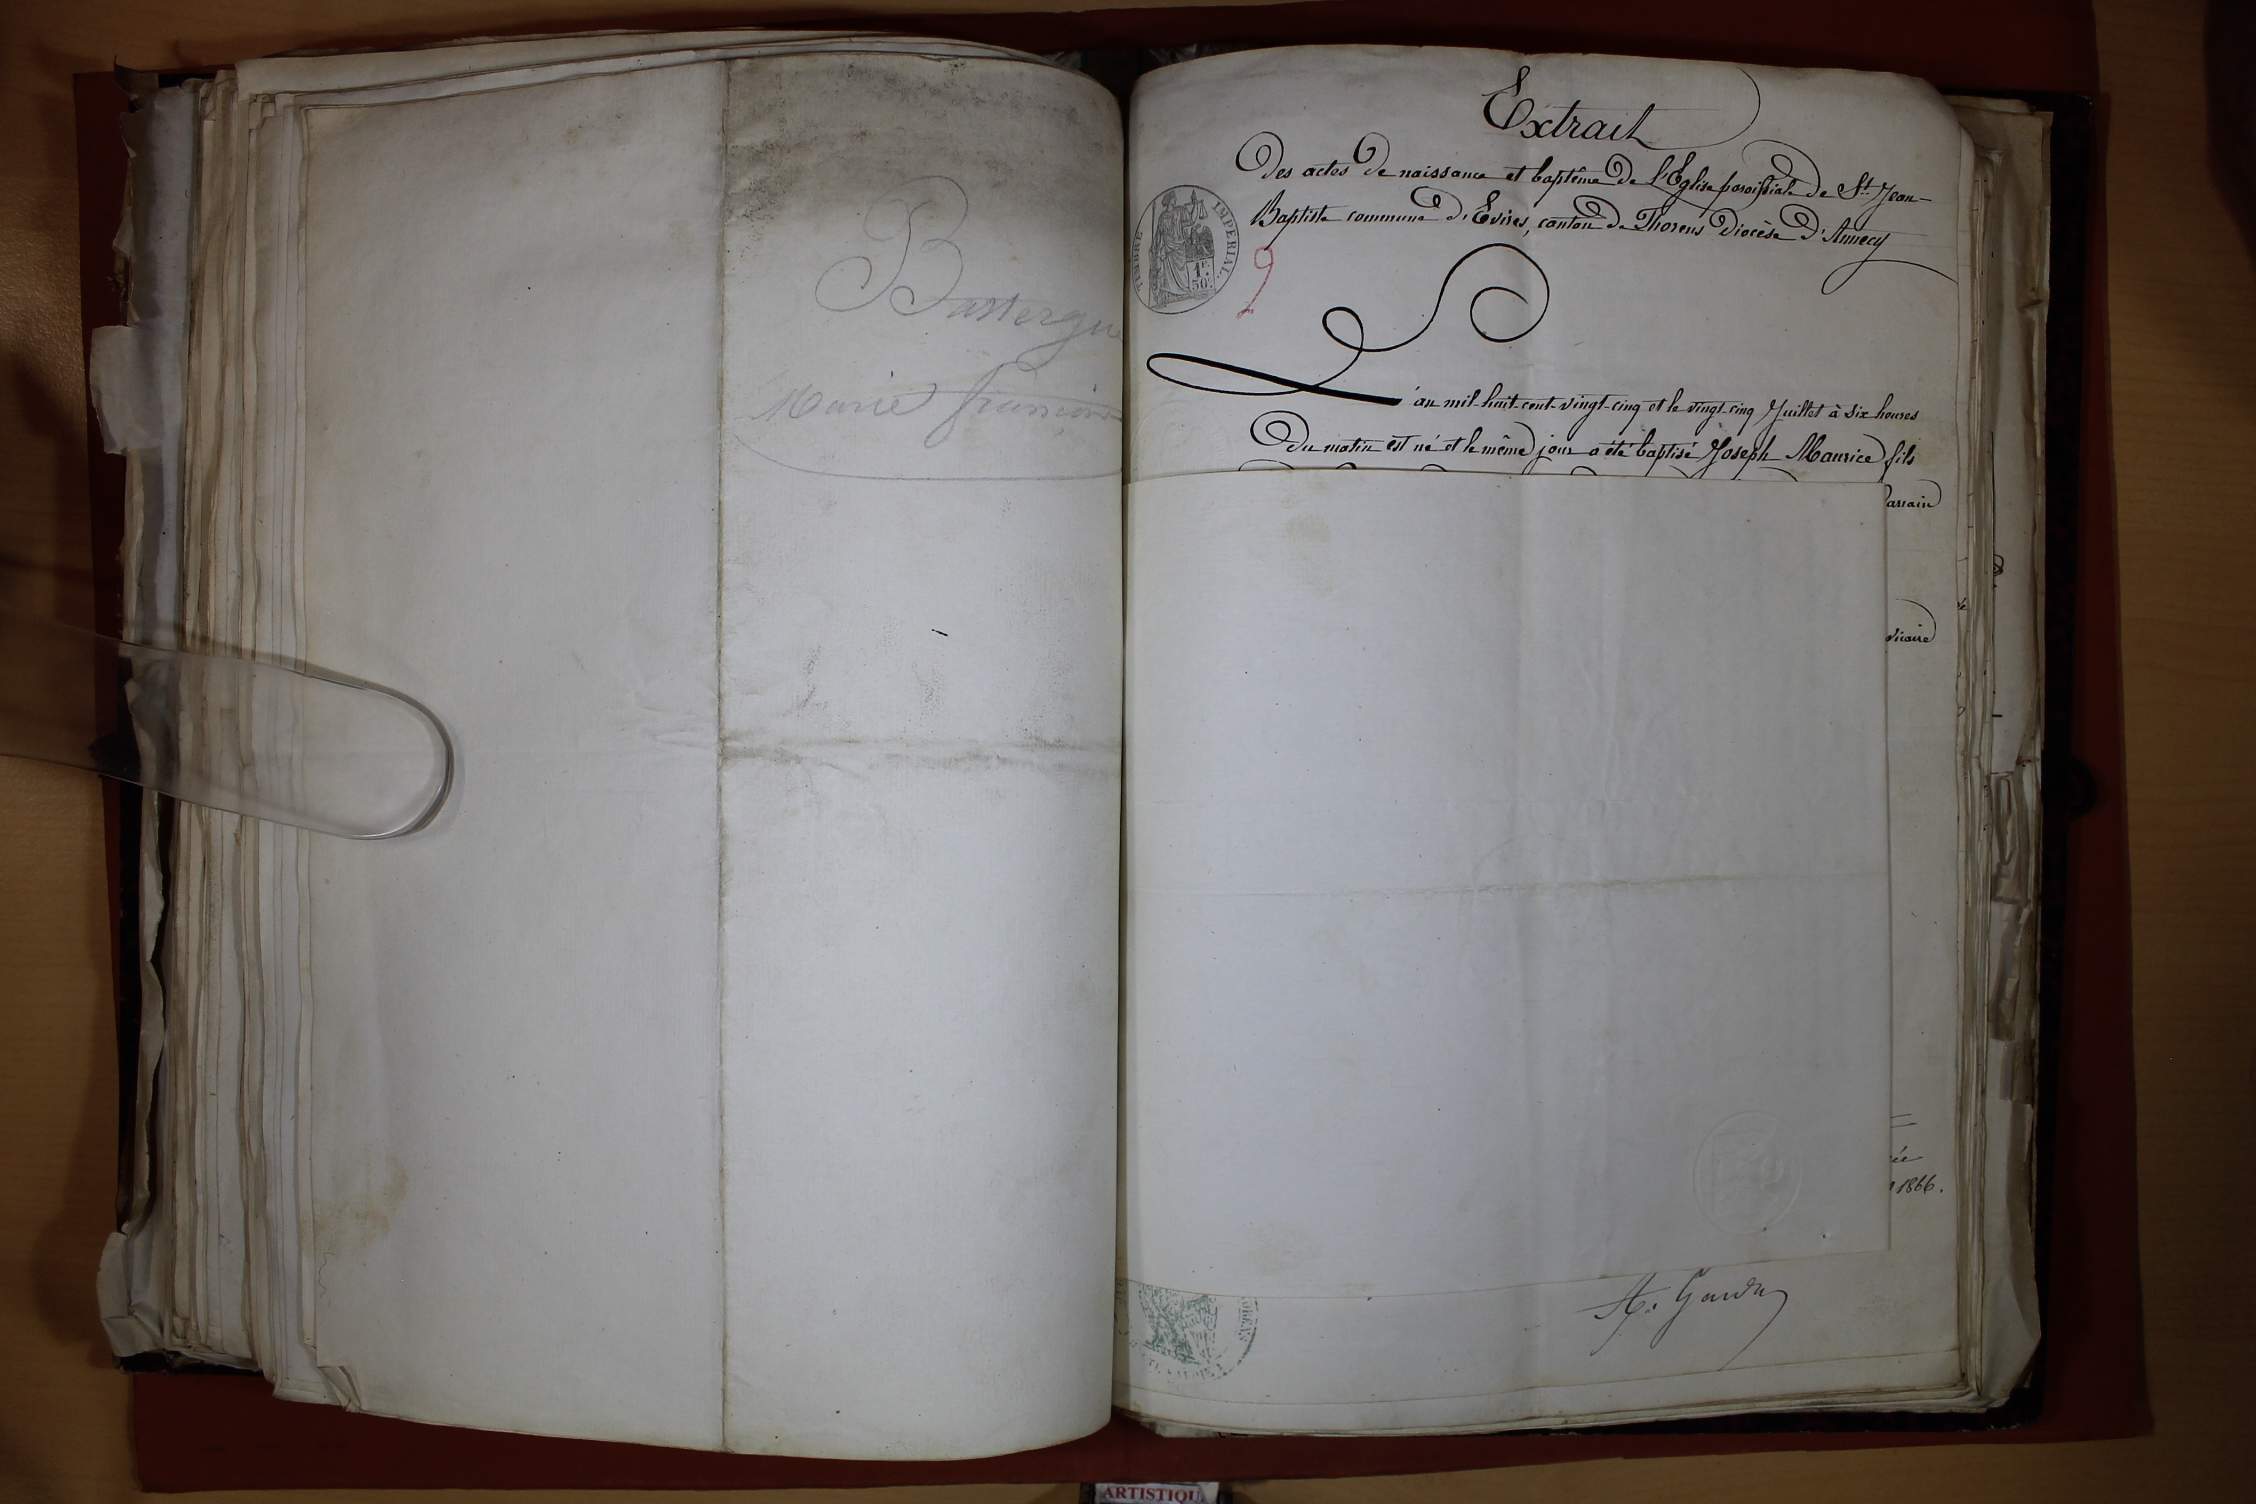 Marie
Extrait
Des actes de naissance et baptême de l'Eglise paroissiale de St. Jean-
Baptiste commune d'Evires, canton de Thorens Diocèse d'Annecy
TIMBRE IMPERIAL.
1F.
50C.
9
L'an mil-huit-cent-vingt-cinq et le vingt-cinq Juillet à six heures
Du matin est né et le même jour a été baptisé Joseph Maurice fils
arrain
vicaire
ée
1866.
ARTISTIQU